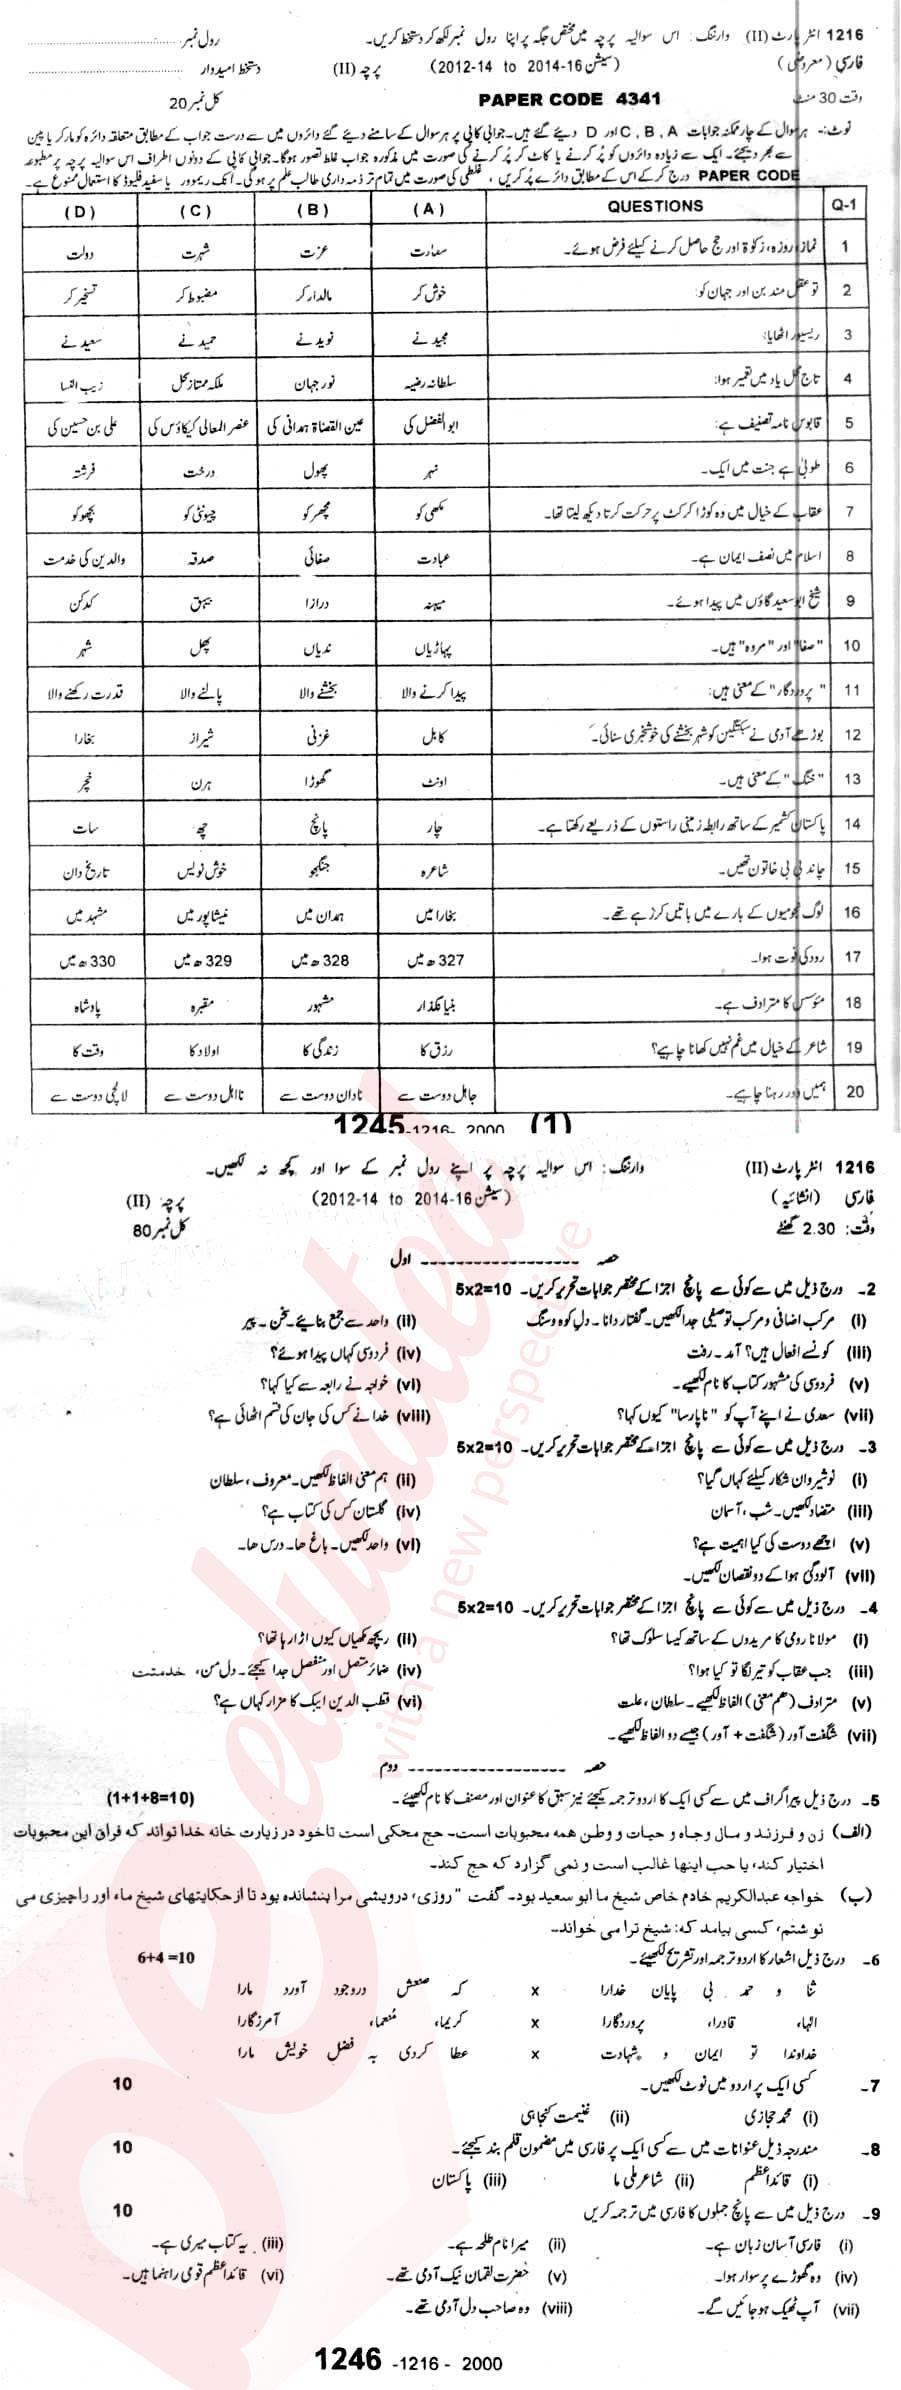 1216 انٹر پارٹ (II) وارننگ: اس سوالیہ پرچہ میں مختص جگہ پر اپنا رول نمبر لکھ کر دستخط کریں۔ رول نمبر
فارسی (معروضی) (سیشن 2012-14 to 2014-16) پرچہ (II) دستخط امیدوار
وقت 30 منٹ PAPER CODE 4341 کل نمبر 20
نوٹ:- ہر سوال کے چار ممکنہ جوابات A , B , C اور D دیئے گئے ہیں۔ جوابی کاپی پر ہر سوال کے سامنے دیئے گئے دائروں میں سے درست جواب کے مطابق متعلقہ دائرہ کو مارکر یا پین
سے بھر دیجئے۔ ایک سے زیادہ دائروں کو پُر کرنے یا کاٹ کر پُر کرنے کی صورت میں مذکورہ جواب غلط تصور ہوگا۔ جوابی کاپی کے دونوں اطراف اس سوالیہ پرچہ پر مطبوعہ
PAPER CODE درج کر کے اس کے مطابق دائرے پُر کریں، غلطی کی صورت میں تمام تر ذمہ داری طالب علم پر ہوگی۔ انک ریموور یا سفید فلیوڈ کا استعمال ممنوع ہے۔
Q-1 QUESTIONS (A) (B) (C) (D)
1 نماز، روزہ، زکوٰۃ اور حج حاصل کرنے کیلئے فرض ہوئے۔ سعادت عزت شہرت دولت
2 تو عقل مند بن اور جہان کو: خوش کر مالدار کر مضبوط کر تسخیر کر
3 ریسیور اٹھایا: مجید نے نوید نے حمید نے سعید نے
4 تاج محل یاد میں تعمیر ہوا: سلطانہ رضیہ نور جہان ملکہ ممتاز محل زیب النسا
5 قابوس نامہ تصنیف ہے: ابوالفضل کی عین القضاۃ ہمدانی کی عنصر المعالی کیکاؤس کی علی بن حسین کی
6 طوبیٰ ہے جنت میں ایک۔ نہر پھول درخت فرشتہ
7 عقاب کے خیال میں وہ کوڑا کرکٹ پر حرکت کرتا دیکھ لیتا تھا۔ مکھی کو مچھر کو چیونٹی کو بچھو کو
8 اسلام میں نصف ایمان ہے۔ عبادت صفائی صدقہ والدین کی خدمت
9 شیخ ابو سعید گاؤں میں پیدا ہوئے۔ میہنہ درازا بیہق کدکن
10 "صفا" اور "مروہ" ہیں۔ پہاڑیاں ندیاں پھل شہر
11 "پروردگار" کے معنی ہیں: پیدا کرنے والا بخشنے والا پالنے والا قدرت رکھنے والا
12 بوڑھے آدمی نے سبکتگین کو شہر بخشنے کی خوشخبری سنائی۔ کابل غزنی شیراز بخارا
13 "خنگ" کے معنی ہیں۔ اونٹ گھوڑا ہرن خچر
14 پاکستان کشمیر کے ساتھ رابطہ زمینی راستوں کے ذریعے رکھتا ہے۔ چار پانچ چھ سات
15 چاند بی بی خاتون تھیں۔ شاعرہ جنگجو خوش نویس تاریخ دان
16 لوگ نجومیوں کے بارے میں باتیں کر رہے تھے۔ بخارا میں ہمدان میں نیشاپور میں مشہد میں
17 رودکی فوت ہوا۔ 327 ھ میں 328 ھ میں 329 ھ میں 330 ھ میں
18 مؤسس کا مترادف ہے۔ بنیانگذار مشہور مقبرہ پادشاہ
19 شاعر کے خیال میں غم نہیں کھانا چاہیے؟ رزق کا زندگی کا اولاد کا وقت کا
20 ہمیں دور رہنا چاہیے۔ جاہل دوست سے نادان دوست سے نااہل دوست سے لالچی دوست سے
1245-1216-2000 (1)
1216 انٹر پارٹ (II) وارننگ: اس سوالیہ پرچہ پر اپنے رول نمبر کے سوا اور کچھ نہ لکھیں۔
فارسی (انشائیہ) (سیشن 2012-14 to 2014-16) پرچہ (II)
وقت: 2.30 گھنٹے کل نمبر 80
حصہ ------------------ اول
2۔ درج ذیل میں سے کوئی سے پانچ اجزا کے مختصر جوابات تحریر کریں۔ 5x2=10
(i) مرکب اضافی و مرکب توصیفی جدا لکھیں۔ گفتار دانا ۔ دل کوہ و سنگ (ii) واحد سے جمع بنایئے۔ سخن ۔ پیر
(iii) کونسے افعال ہیں؟ آمد ۔ رفت (iv) فردوسی کہاں پیدا ہوئے؟
(v) فردوسی کی مشہور کتاب کا نام لکھیے۔ (vi) خواجہ نے رابعہ سے کیا کہا؟
(vii) سعدی نے اپنے آپ کو "ناپارسا" کیوں کہا؟ (viii) خدا نے کس کی جان کی قسم اٹھائی ہے؟
3۔ درج ذیل میں سے کوئی سے پانچ اجزا کے مختصر جوابات تحریر کریں۔ 5x2=10
(i) نوشیروان شکار کیلئے کہاں گیا؟ (ii) ہم معنی الفاظ لکھیں۔ معروف ، سلطان
(iii) متضاد لکھیں۔ شب ، آسان (iv) گلستان کس کی کتاب ہے؟
(v) اچھے دوست کی کیا اہمیت ہے؟ (vi) واحد لکھیں۔ باغ ھا۔ درس ھا۔
(vii) آلودگئ ہوا کے دو نقصان لکھیں۔
4۔ درج ذیل میں سے کوئی سے پانچ اجزا کے مختصر جوابات تحریر کریں۔ 5x2=10
(i) مولانا رومی کا مریدوں کے ساتھ کیسا سلوک تھا؟ (ii) ریچھ مکھیاں کیوں اڑا رہا تھا؟
(iii) جب عقاب کو تیر لگا تو کیا ہوا؟ (iv) ضمائر متصل اور منفصل جدا کیجئے۔ دل من، خدمتت
(v) مترادف (ھم معنی) الفاظ لکھیے۔ سلطان ، علت (vi) قطب الدین ایبک کا مزار کہاں ہے؟
(vii) شگفت آور (شگفت + آور) جیسے دو الفاظ لکھیے۔
حصہ ------------------ دوم
5۔ درج ذیل پیراگراف میں سے کسی ایک کا اردو ترجمہ کیجئے نیز سبق کا عنوان اور مصنف کا نام لکھیئے۔ (1+1+8=10)
(الف) زن و فرزند و مال و جاه و حیات و وطن همه محبوبات است۔ حج محکی است تا خود در زیارت خانه خدا تواند که فراق این محبوبات
اختیار کند، یا حب اینها غالب است و نمی گزارد که حج کند۔
(ب) خواجه عبدالکریم خادم خاص شیخ ما ابو سعید بود۔ گفت "روزی، درویشی مرا بنشانده بود تا از حکایتهای شیخ ماء اور را چیزی می
نوشتم، کسی بیامد که: شیخ ترا می خواند۔
6۔ درج ذیل اشعار کا اردو ترجمہ اور تشریح لکھیئے۔ 6+4=10
ثنا و حمد بی پایان خدارا x کہ صنعش دروجود آورد مارا
الہا، قادرا، پروردگارا x کریما، مُنعما، آمرزگارا
خداوندا تو ایمان و شہادت x عطا کردی بہ فضل خویش مارا
7۔ کسی ایک پر اردو میں نوٹ لکھیں۔ 10
(i) محمد حجازی (ii) غنیمت کنجاہی
8۔ مندرجہ ذیل عنوانات میں سے کسی ایک پر فارسی میں مضمون قلم بند کیجئے۔ 10
(i) قائداعظم (ii) شاعر ملی ما (iii) پاکستان
9۔ درج ذیل میں سے پانچ جملوں کا فارسی میں ترجمہ کریں 10
(i) فارسی آسان زبان ہے۔ (ii) میرا نام طلحہ ہے۔ (iii) یہ کتاب میری ہے۔
(iv) وہ گھوڑے پر سوار ہوا۔ (v) حضرت لقمان نیک آدمی تھے۔ (vi) قائداعظم قومی راہنما ہیں۔
(vii) آپ ٹھیک ہو جائیں گے۔ (viii) وہ صاحب دل آدمی تھے۔
1246 -1216- 2000